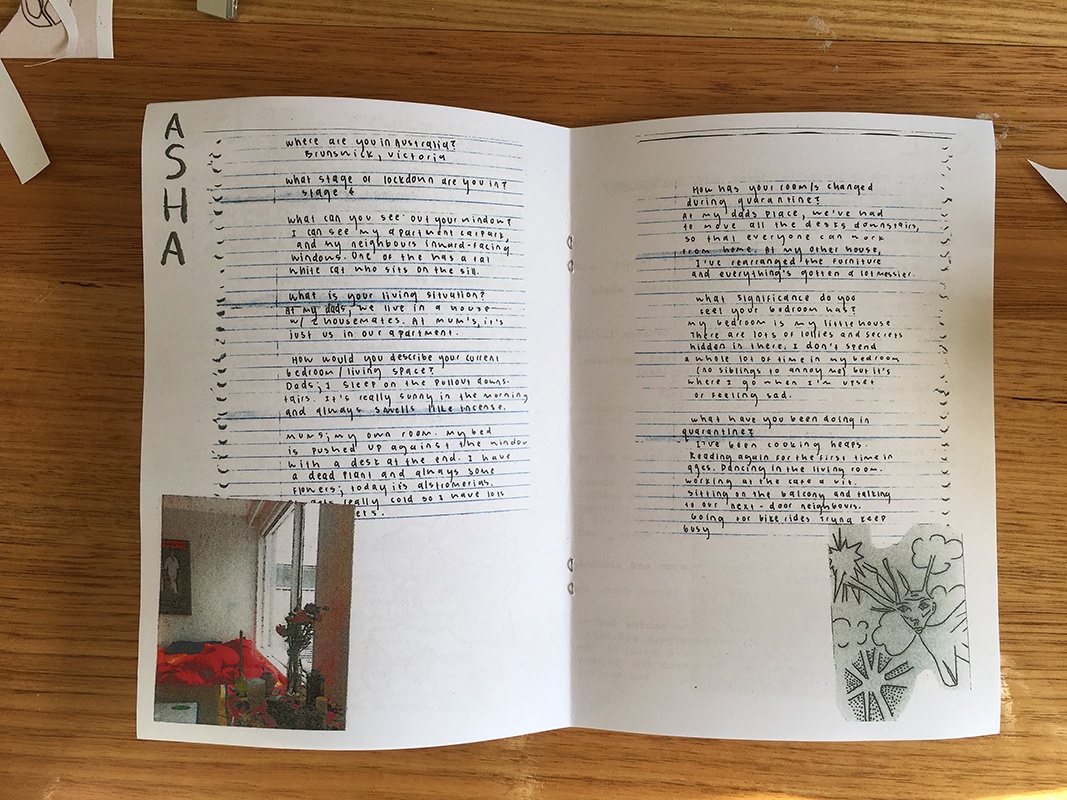 ASHA
where are you in Australia?
Brunswick, Victoria
what stage of lockdown are you in?
stage 4
what can you see out your window?
I can see my apartment carpark
and my neighbours inward-facing
windows. One of the has a fat
white cat who sits on the sill.
what is your living situation?
At my dads, we live in a house
w/ 2 housemates. At mum's, it's
just us in our apartment.
How would you describe your current
bedroom/living space?
Dads; I sleep on the pullout downs-
tairs. It's really sunny in the morning
and always smells like incense.
mums; my own room. my bed
is pushed up against the window
with a desk at the end. I have
a dead plant and always some
flowers; today its alstromerias.
gets really cold so I have lots
How has your room/s changed
during quarantine?
At my dads place, we've had
to move all the desks downstairs,
so that everyone can work
from home. At my other house,
I've rearranged the furniture
and everything's gotten a lot messier.
what significance do you
feel your bedroom has?
my bedroom is my little house
There are lots of lollies and secrets
hidden in there. I don't spend
a whole lot of time in my bedroom
(no siblings to annoy me) but it's
where I go when I'm upset
or feeling sad.
what have you been doing in
quarantine?
I've been cooking heaps.
Reading again for the first time in
ages. Dancing in the living room.
working at the cafe a bit.
sitting on the balcony and talking
to our next-door neighbours.
Going for bike rides Tryna keep
busy